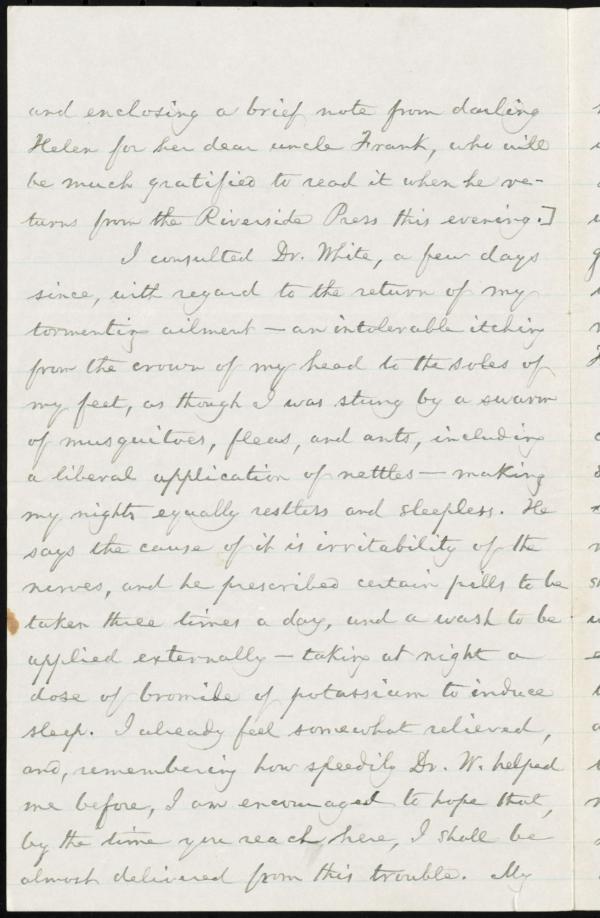 and enclosing a brief note from darling
Helen for her dear uncle Frank, who will
be much gratified to read it when he re-
turns from the Riverside Press this evening.]
I consulted Dr. White, a few days
since, with regard to the return of my
tormenting ailment — an intolerable itching
from the crown of my head to the soles of
my feet, as though I was stung by a swarm
of musquitoes, fleas, and ants, including
a liberal application of nettles — making
my nights equally restless and sleepless. He
says the cause of it is irritability of the
nerves, and he prescribed certain pills to be
taken three times a day, and a wash to be
applied externally — taking at night a
dose of bromide of potassium to induce
sleep. I already feel somewhat relieved,
and, remembering how speedily Dr. W. helped
me before, I am encouraged to hope that,
by the time you reach here, I shall be
almost delivered from this trouble. My